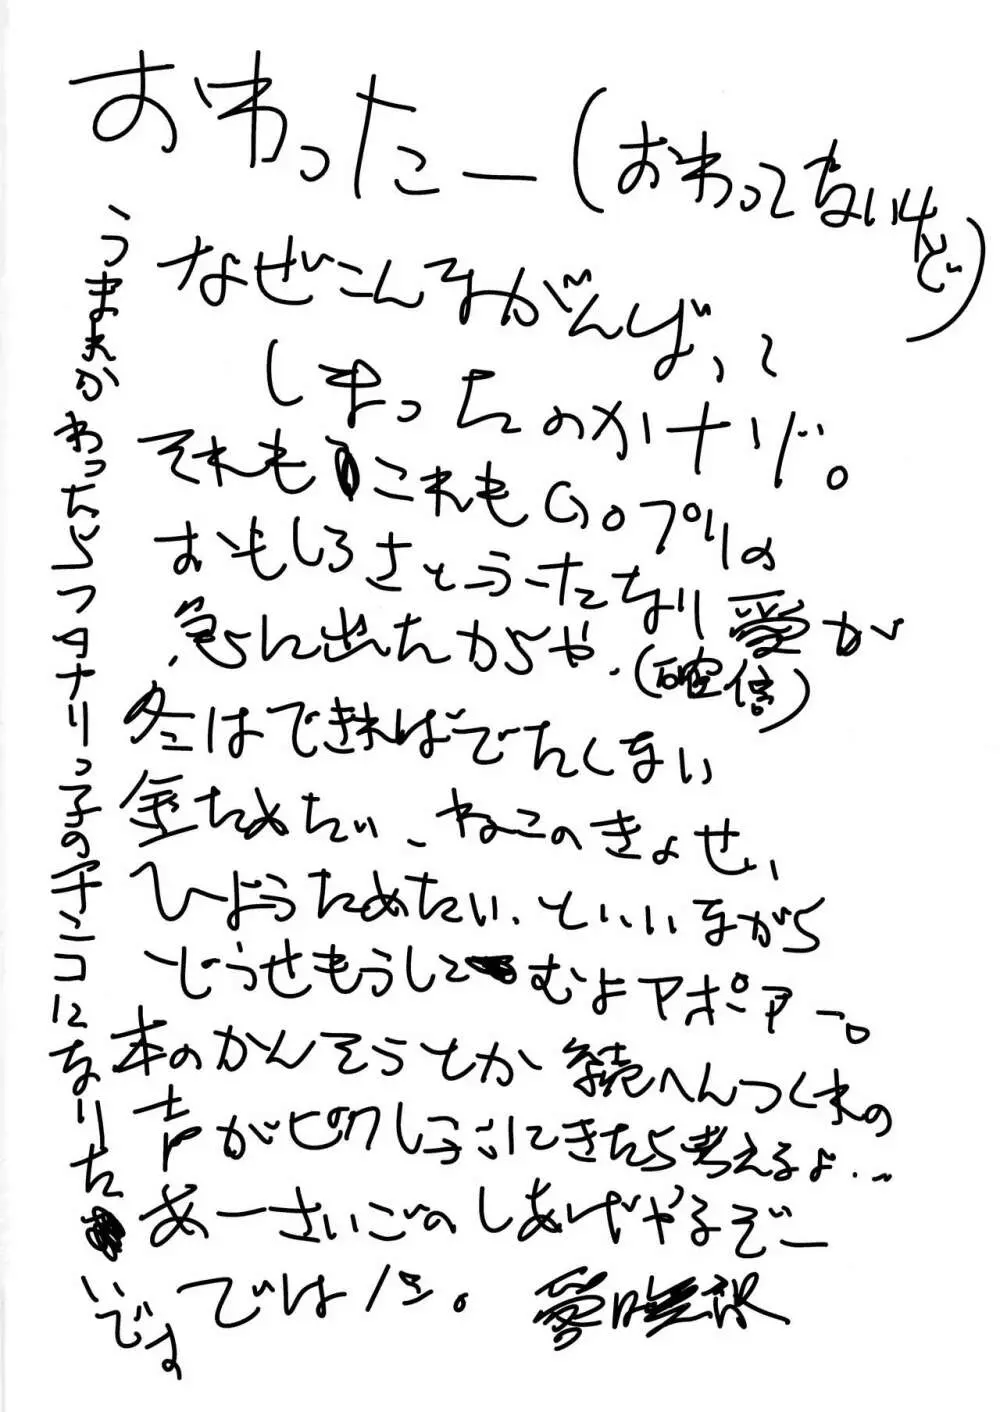 おわったー(おわってないけど)
なぜこんながんばって
しまったのかナゾ。
それもこれもGOプリの
おもしろさとうたなり愛が
急に出たからや.(確信)
冬はできればでたくない
金ためたい、ねこのきょせい
ひようためたい.といいながら
どうせもうしこむよアポアー。
本のかんそうとか続へんつくれの
声がピクし子にきたら考えるよ…
あーさいごのしあげやるぞー
ではノシ。
うまれかわったらフタナリっ子のチンコになりたいです